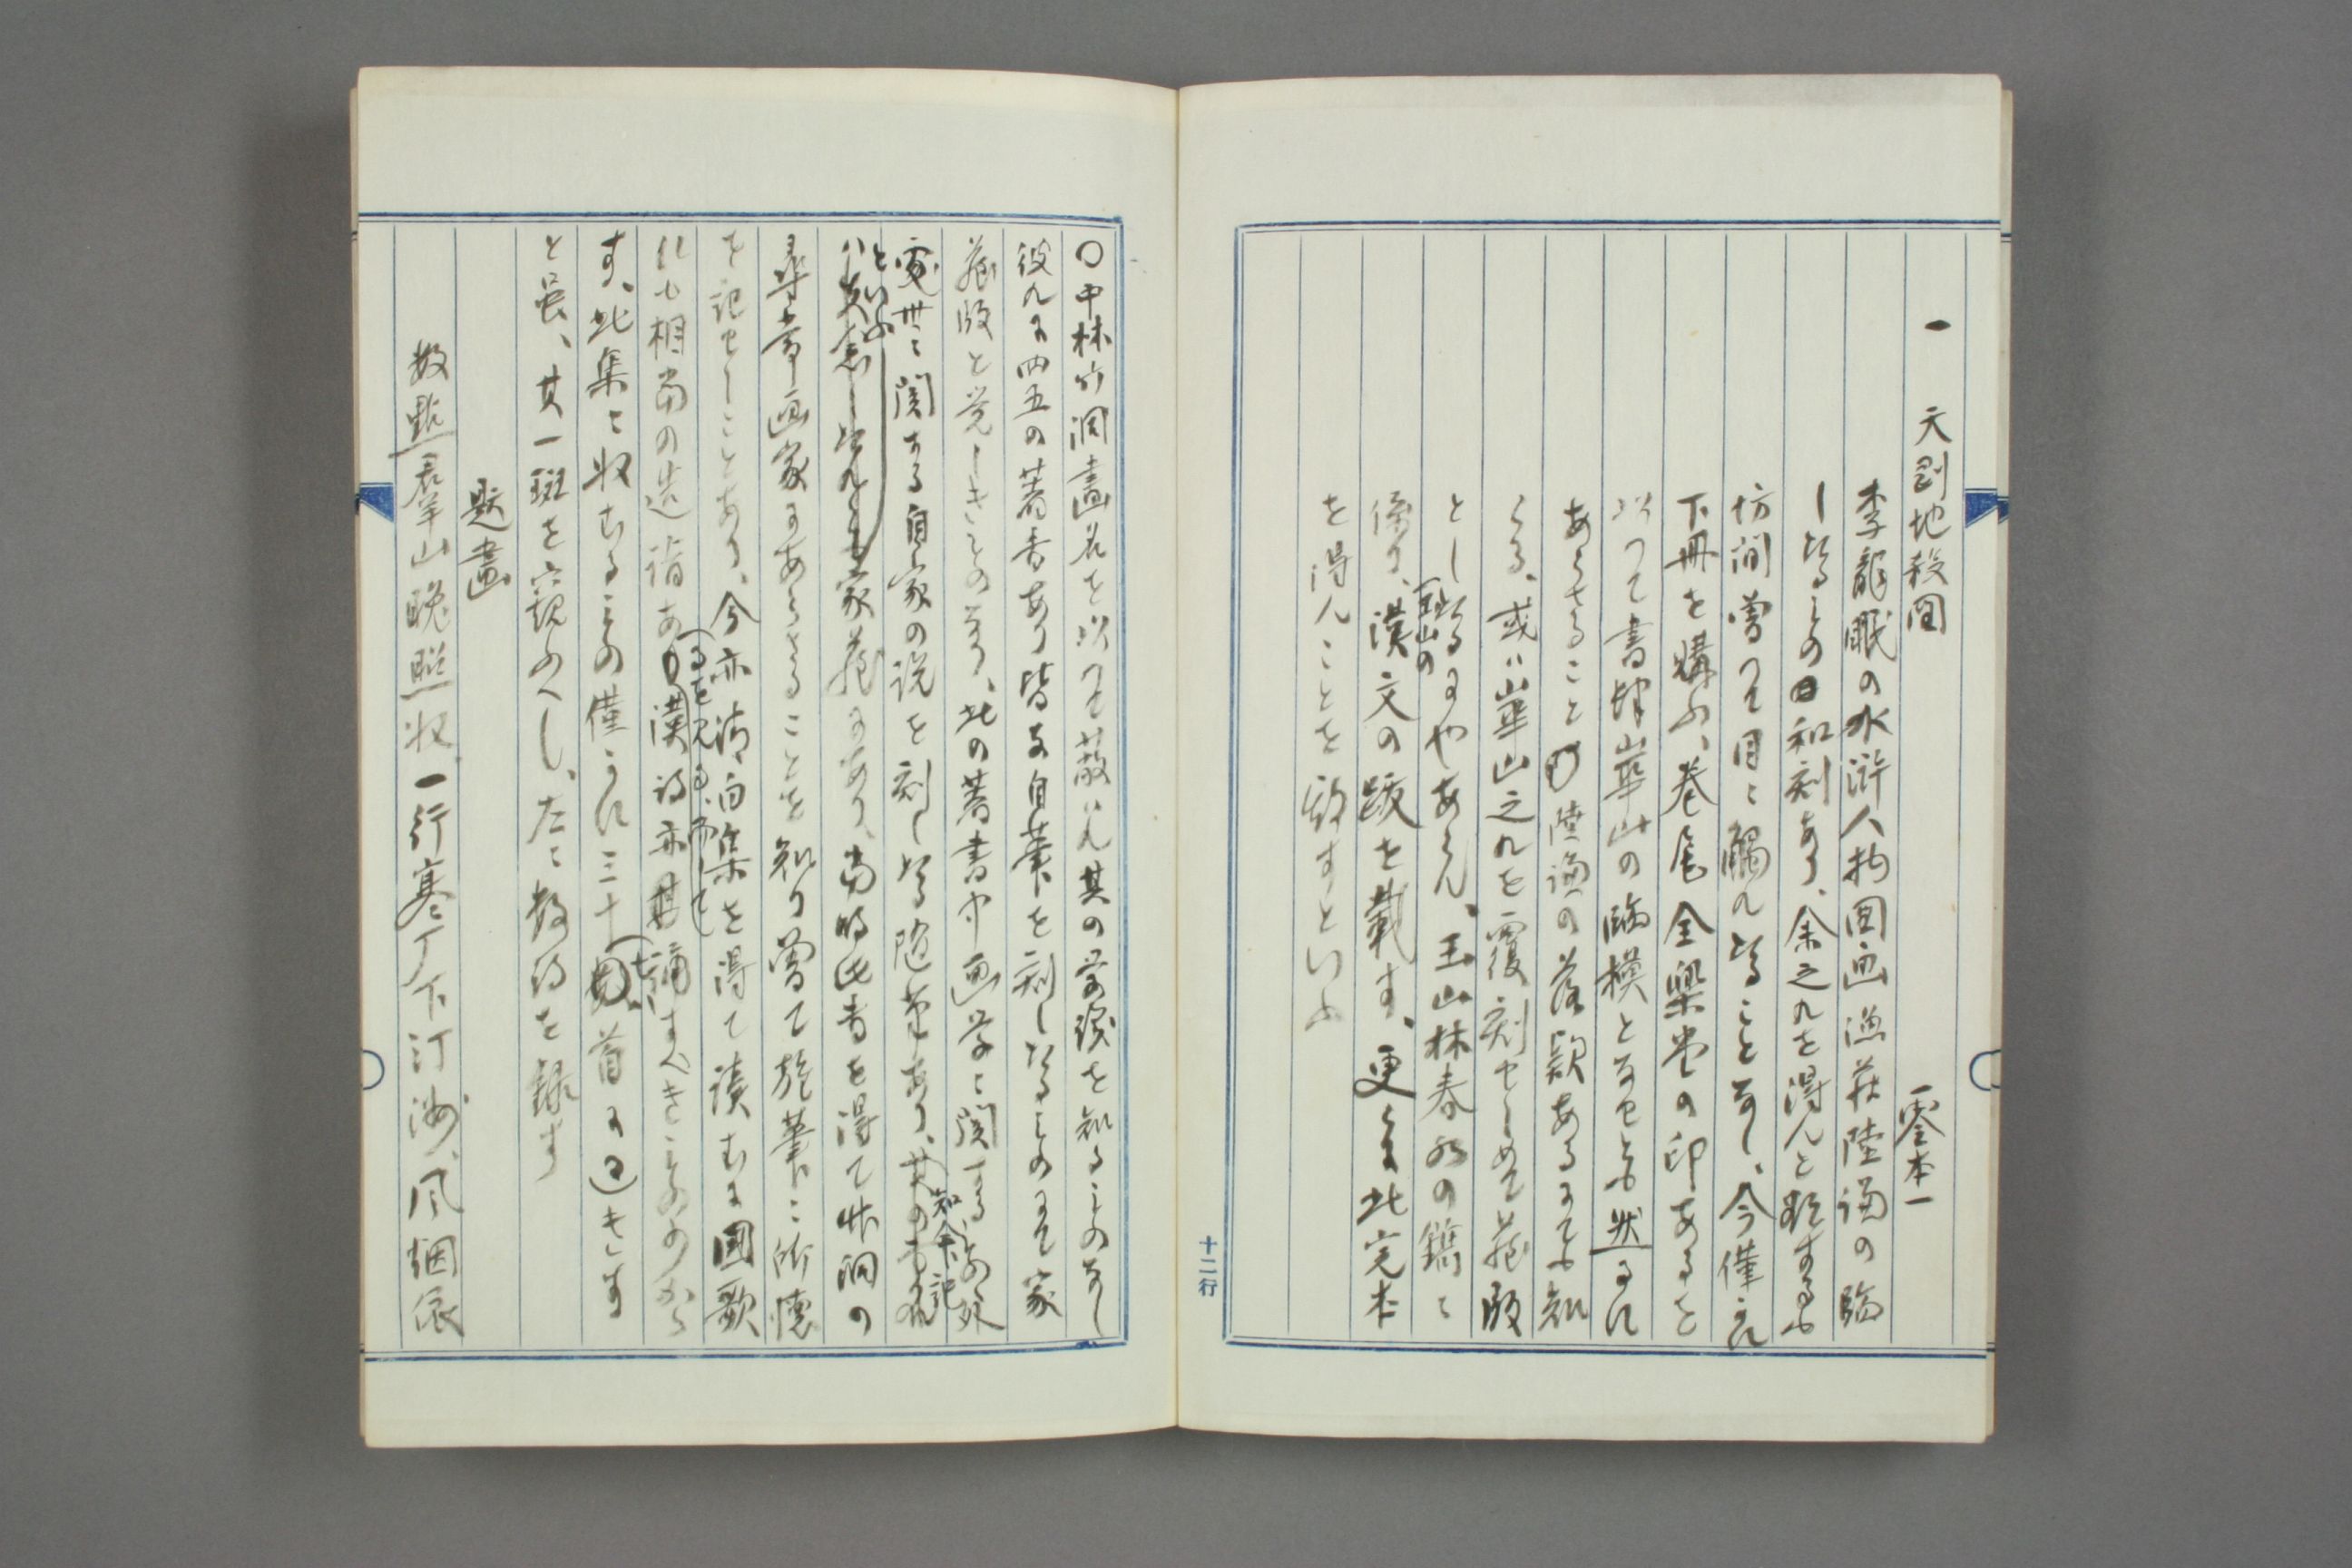 一 天剴地殺圖 零本一
李龍眠の水滸人物図画漁荘陸謙の臨
したるもの和刻あり、余之れを得んと欲するも
坊間曽つて目に触れたることなし、今僅かに
下冊を購ふ、巻尾全楽堂の印あるを
以つて書肆崋山の臨模となせとも然るに
あらさること陸謙の落款あるにても知
らる、或ハ崋山之れを覆刻せしめて蔵版
とし たるにやあらん、玉山林春 の鐫に
係り、崋山の漢文の跋を載す、更らに此完本
を得んことを期すといふ
十二行
〇中林竹洞畫名を以つて蔽はれ其の学識を知るものなし
彼れに四五の著書あり皆な自筆を刻したるものにて家
蔵版と覚しきものなり、此の著書中画学に関する 外
処世に関する自家の説を刻したる随筆あり、知命記
といふ 家蔵にあり、当時此書を得て竹洞の
尋常画家にあらさることを知り曽て旅筆に所懐
を記せしことあり、今亦 集を得て読むに国歌
にも相当の造詣あるを見る、而して漢詩亦 誦すへきもの少から
す、此集に収むるもの僅かに三十七首に きす
と雖、其一斑を窺ふへし、左に数詩を録す
題畫
数點羣山晩照収、一行寒 下汀洲、風烟